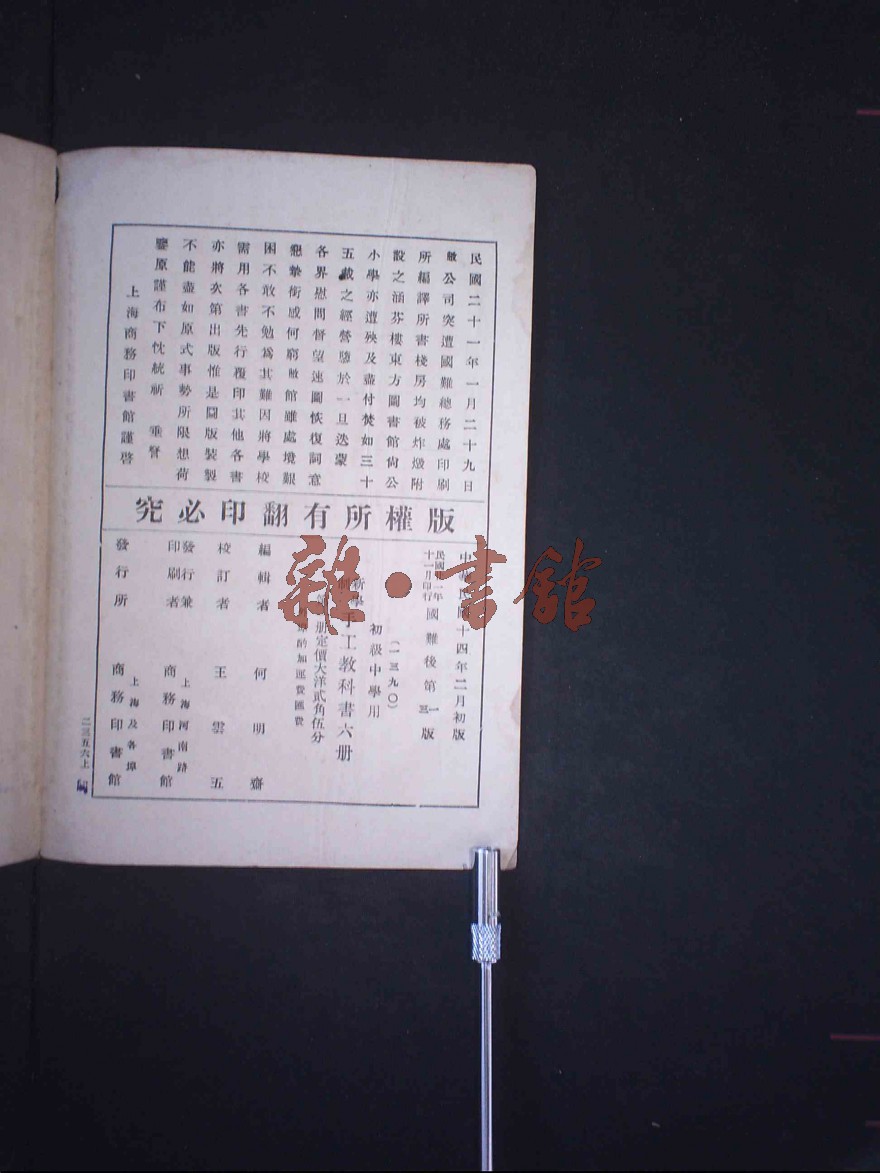 民國二十一年一月二十九日
敝公司突遭國難總務處印刷
所編譯所書棧房均被炸燬附
設之涵芬樓東方圖書館尙公
小學亦遭殃及盡付焚如三十
五載之經營隳於一旦迭蒙
各界慰問督望速圖恢復詞意
懇摯銜感何窮敝館雖處境艱
困不敢不勉爲其難因將學校
需用各書先行覆印其他各書
亦將次第出版惟是圖版裝製
不能盡如原式事勢所限想荷
鑒原謹布下忱統祈 垂詧
上海商務印書館謹啓
版權所有翻印必究
中華民國十四年二月初版
民國二年十一月印行 國難後第一版
(一三九〇)
初級中學用
新學制手工教科書六册
册定價大洋貳角伍分
酌加運費匯費
編輯者 何明齋
校訂者 王雲五
發行兼印刷者 上海河南路 商務印書館
發行所 上海及各埠 商務印書館
二三五六上
雜·書館